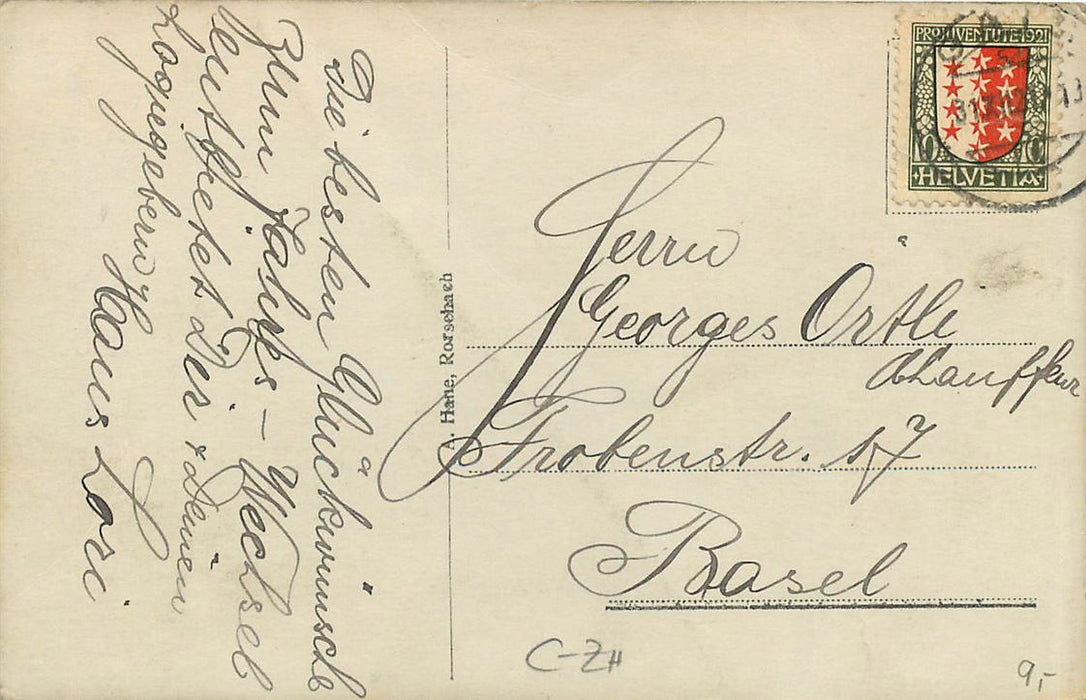 Die besten Glückwünsche
Zum Jahres-Wechsel
entbietet Dir & Deinen
Logisgebern
Hans Lori
A. Hane, Rorschach
PRO JUVENTUTE 1921
10 10
HELVETIA
Herrn
Georges Ortli
Chauffeur
Frobenstr. 17
Basel
C-ZH
9,-